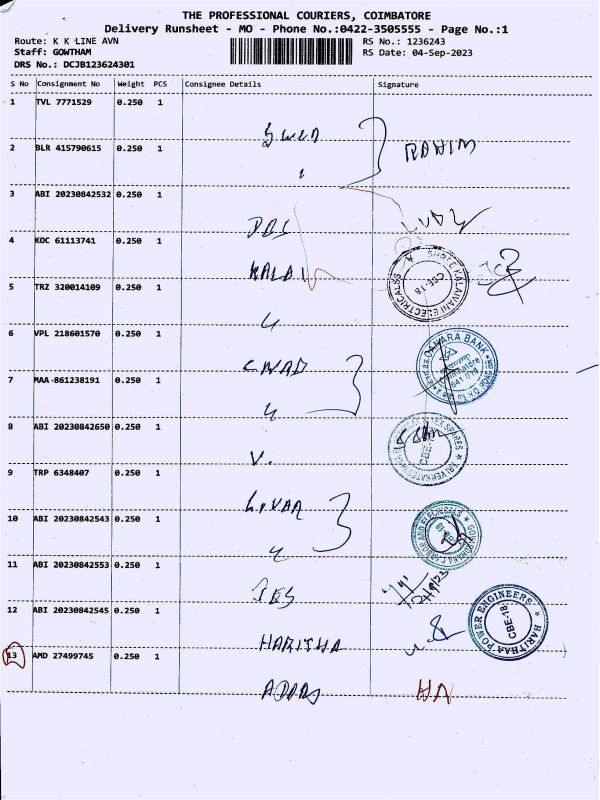 THE PROFESSIONAL COURIERS, COIMBATORE
Delivery Runsheet - MO - Phone No.:0422-3505555 - Page No.:1
Route: K K LINE AVN
RS No.: 1236243
Staff: GOWTHAM
RS Date: 04-Sep-2023
DRS No.: DCJB123624301
S No Consignment No Weight PCS Consignee Details Signature
1 TVL 7771529 0.250 1
2 BLR 415790615 0.250 1
RAHIM
3 ABI 20230842532 0.250 1
4 KOC 61113741 0.250 1
KALAI
SHREE KALAIVANI ELECTRICALSS CBE-18
5 TRZ 320014109 0.250 1
6 VPL 218601570 0.250 1
CANARA BANK
7 MAA-861238191 0.250 1
8 ABI 20230842650 0.250 1
V.
9 TRP 6348407 0.250 1
10 ABI 20230842543 0.250 1
11 ABI 20230842553 0.250 1
12 ABI 20230842545 0.250 1
HARITHA
HARITHAA POWER ENGINEERS CBE-18
13 AMD 27499745 0.250 1